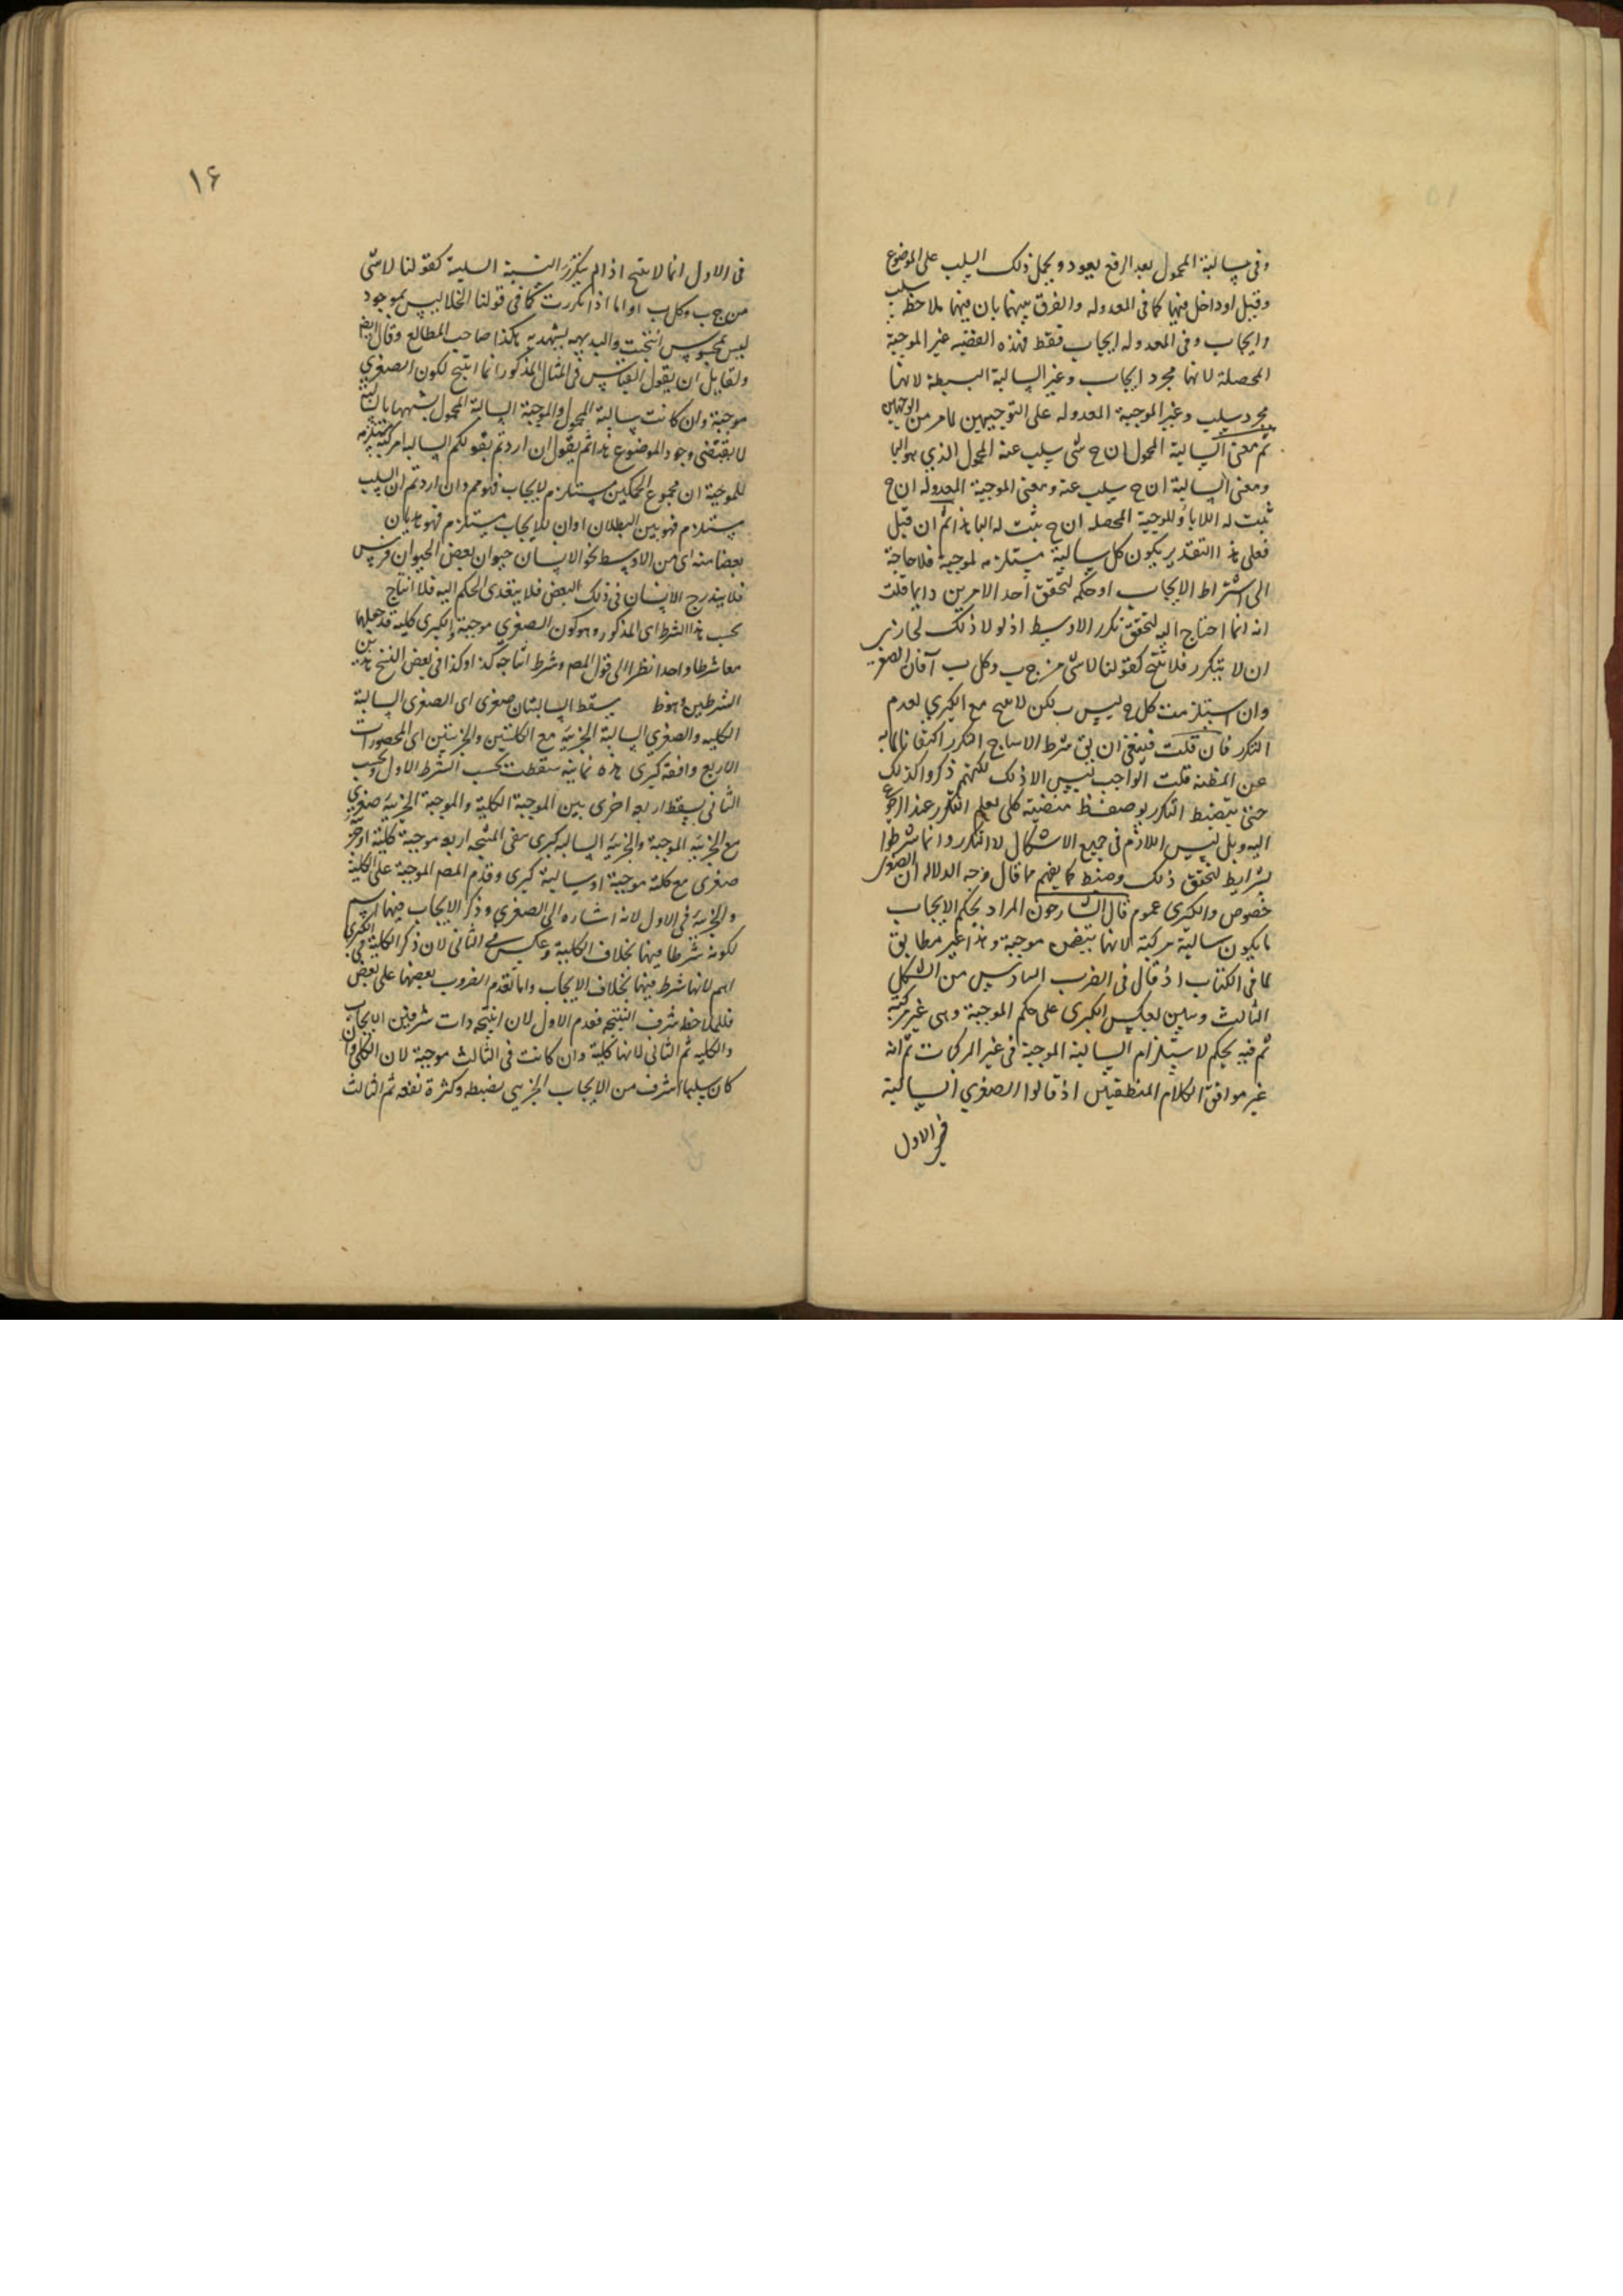 وفى سالبة المحمول بعد الرفع يعود ويحمل ذلك السلب على الموضوع
وقيل او داخل فيها كما فى المعدوله والفرق بينهما بان فيهما ملاحظة سلب
وايجاب وفى المعدوله ايجاب فقط فهذه القضيه غير الموجبة
المحصلة لانها مجرد ايجاب وغير السالبة البسيطة لانها
مجرد سلب وغير الموجبة المعدوله على التوجيهين لما مر من الوجهين
ثم معنى السالبة المحمول ان ج شئ سلب عنه المحمول الذي هو البا
ومعنى السالبة ان ج سلب عنه ومعنى الموجبة المعدوله ان ج
ثبت له اللاباء وللموجبة المحصله ان ج ثبت له البا هذا ثم ان قيل
فعلى هذا التقدير يكون كل سالبة مستلزمه لموجبة فلا حاجة
الى اشتراط الايجاب او حكمه لتحقق أحد الامرين دايما قلت
انه انما احتاج اليه لتحقق تكرر الاوسط اذ لولا ذلك لجاز
ان لا يتكرر فلا ينتج كقولنا لا شئ من ج ب وكل ب آ فان الصغرى
وان استلزمت كل ج ليس ب لكن لا ينتج مع الكبرى لعدم
التكرر فان قلت فينبغى ان شرط الانتاج التكرر اكتفاء
عن المظنه قلت الواجب ليس الا ذلك لكنهم ذكروا كذلك
حتى ينضبط التكرر كلى يعلم التكرر عند الرجوع
اليه وبل ليس اللازم فى جميع الاشكال الا التكرر وانما شرطوا
بشرايط لتحقق ذلك وضبط كما يفهم مما قال وجه الدلاله ان الصغرى
خصوص والكبرى عموم قال الشارحون المراد بحكم الايجاب
ما يكون سالبة مركبة لانها يتضمن موجبة وهذا غير مطابق
لما فى الكتاب اذ قال فى الضرب السادس من الشكل
الثالث ويبين بعكس الكبرى على حكم الموجبة وهى غير مركبة
ثم فيه بحكم لاستلزام السالبة الموجبة فى غير المركبات ثم انه
غير موافق الكلام المنطقيين اذ قالوا الصغرى السالبة
فى الاول
١٦
فى الاول انما لا ينتج اذا لم يتكرر النسبة السلبية كقولنا لا شئ
من ج ب وكل ب ا واما اذا تكررت كما فى قولنا الخلا ليس بموجود
ليس بمحسوس انتجت والبديهه يشهد به هكذا صاحب المطالع وقال ايضا
ولقايل ان يقول القياس فى المثال المذكور انما انتج لكون الصغرى
موجبة وان كانت سالبة المحمول والموجبة السالبة المحمول لشبهها بالسالبة
لا يقتضى وجود الموضوع هذا ثم يقول ان اردتم بقولكم السالبه المركبة مستلزمه
للموجبة ان مجموع الحكمين مستلزم لايجاب فهو مم وان اردتم ان السلب
مستلزم فهو بين البطلان او ان للايجاب مستلزم فهو هذيان
بعضا منه اى من الاوسط نحو الانسان حيوان بعض الحيوان فرس
فلا يندرج الانسان فى ذلك البعض فلا يتعدى الحكم اليه فلا انتاج
بحسب هذا الشرط اى المذكور وهو كون الصغرى موجبة والكبرى كلية قد جعلهما
معا شرطا واحدا نظرا الى قول المصم وشرط انتاجه كذا وكذا فى بعض النسخ هذين
الشرطين وهو ظ يسقط السالبتان صغرى اى الصغرى السالبة
الكليه والصغرى السالبة الجزئية مع الكليتين والجزئيتين اى المحصورات
الاربع واقعة كبرى هذه ثمانية سقطت بحسب الشرط الاول وبحسب
الثانى يسقط اربعه اخرى بين الموجبة الكلية والموجبة الجزئية صغرى
مع الجزئية الموجبة والجزئية السالبه كبرى بقى المنتجه اربعه موجبة كلية او جزئية
صغرى مع كلية موجبة او سالبة كبرى وقدم المصم الموجبة على الكلية
والجزئية فى الاول لانه اشاره الى الصغرى وذكر الايجاب فيها اهم
لكونه شرطا فيها بخلاف الكلية وعكس فى الثانى لان ذكر الكلية فى الكبرى
اهم لانها شرط فيها بخلاف الايجاب واما تقدم الضروب بعضها على بعض
فللملاحظه شرف النتيجه فقدم الاول لان نتيجته ذات شرفين الايجاب
والكليه ثم الثانى لانها كلية وان كانت فى الثالث موجبة لان الكلى وان
كان سلبا اشرف من الايجاب الجزيى لضبطه وكثرة نفعه ثم الثالث